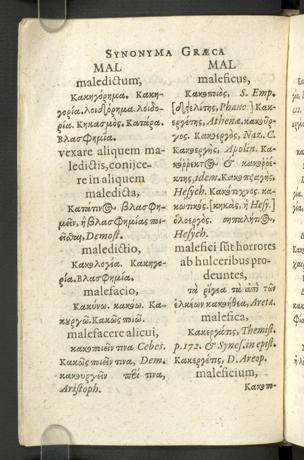 SYNONYMA GRÆCA
MAL
maledictum,
Κακηγόρημα. Κακη-
γορία. λοιδόρημα. λοιδο-
ρία. Κηκασμός. Κατάρα.
Βλασφημία.
vexare aliquem ma-
ledictis, conijce-
re in aliquem
maledicta,
βλασφη-
μεῖν, ἢ βλασφημίας
Demost.
maledictio,
Κακολογία. Κακηγο-
ρία. Βλασφημία.
malefacio,
Κακύνω. κακόω. Κα-
κουργῶ. Κακῶς ποιῶ.
malefacere alicui,
κακοποιεῖν τινα Cebes.
Κακῶς ποιεῖν τινα, Dem.
κακουργεῖν τινα,
Aristoph.
MAL
maleficus,
Κακοποιός, S. Emp.
Phauo.) Κακ-
εργέτης, Athenæ. κακοῦρ-
γος. Κακοεργός, Naz. C.
Κακοεργής, Apolin. Κα-
&
idem.
Hesych. κα-
Hes.]
ὀλοεργός.
Hesych.
malefici sũt horrores
ab hulceribus pro-
deuntes,
τὰ ῥίγεα τὰ ἀπὸ τῶν
ἑλκέων κακοήθεα, Areta.
malefica,
Κακεργάτις, Themist.
p. 172. & Synes. in epist.
Κακεργέτις, D. Areop.
maleficium,
Κακοπ-